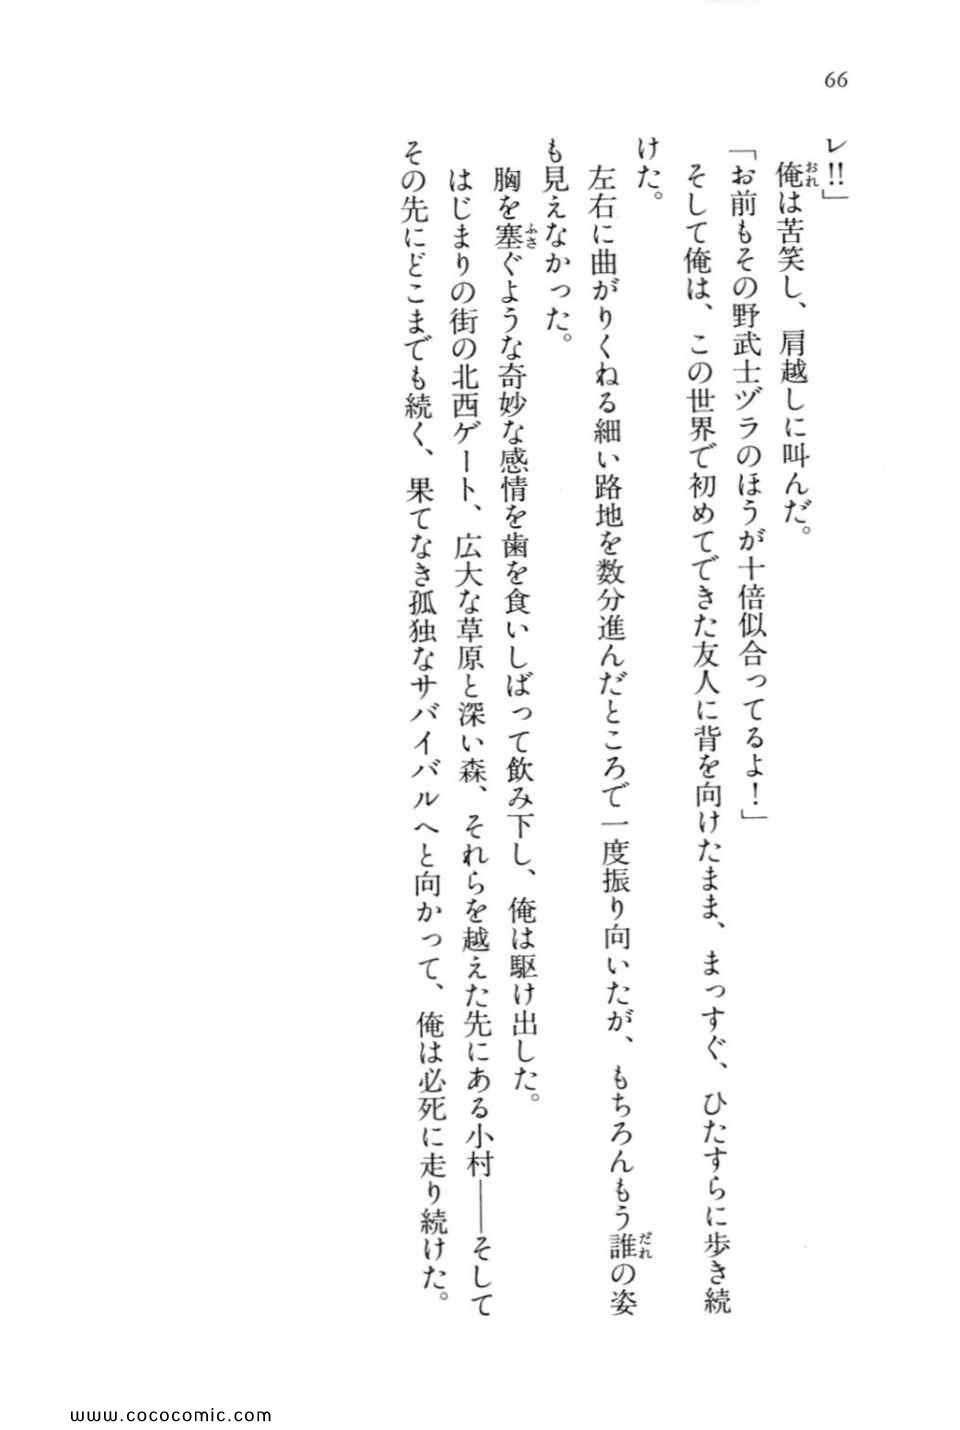 66
レ!!」
俺は苦笑し、肩越しに叫んだ。
「お前もその野武士ヅラのほうが十倍似合ってるよ!」
そして俺は、この世界で初めてできた友人に背を向けたまま、まっすぐ、ひたすらに歩き続
けた。
左右に曲がりくねる細い路地を数分進んだところで一度振り向いたが、もちろんもう誰の姿
も見えなかった。
胸を塞ぐような奇妙な感情を歯を食いしばって飲み下し、俺は駆け出した。
はじまりの街の北西ゲート、広大な草原と深い森、それらを越えた先にある小村――そして
その先にどこまでも続く、果てなき孤独なサバイバルへと向かって、俺は必死に走り続けた。
www.cococomic.com